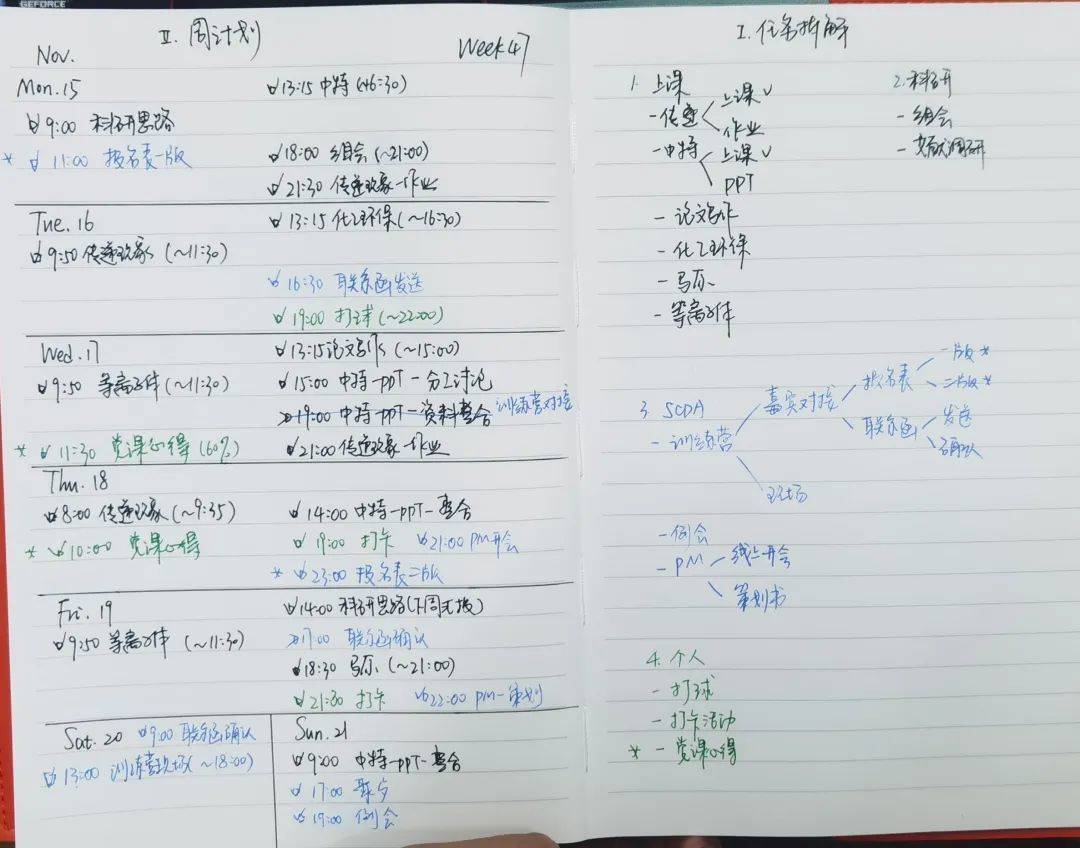 GEFORCE
II. 周计划
Nov.
Week 47
Mon. 15
13:15 中特 (~16:30)
9:00 科研思路
* 11:00 报名表一版
18:00 组会 (~21:00)
21:30 传递现象-作业
Tue. 16
13:15 化工环保 (~16:30)
9:50 传递现象 (~11:30)
16:30 联系函发送
19:00 打球 (~22:00)
Wed. 17
13:15 论文写作 (~15:00)
9:50 等离子体 (~11:30)
15:00 中特-PPT-分工讨论
19:00 中特-PPT-资料整合 训练营对接
* 11:30 党课心得 (60%)
21:00 传递现象-作业
Thu. 18
8:00 传递现象 (~9:35)
14:00 中特-PPT-整合
* 10:00 党课心得
19:00 打卡 21:00 PM开会
* 23:00 报名表二版
Fri. 19
14:00 科研思路(下周汇报)
9:50 等离子体 (~11:30)
17:00 联系函确认
18:30 马原 (~21:00)
21:30 打卡 22:00 PM-策划
Sat. 20 9:00 联系函确认
13:00 训练营现场 (~18:00)
Sun. 21
9:00 中特-PPT-整合
17:00 聚
19:00 例会
I. 任务拆解
1. 上课
- 传递
上课 ✓
作业
- 中特
上课 ✓
PPT
- 论文写作
- 化工环保
- 马原
- 等离子体
2. 科研
- 组会
- 文献调研
3. SCDA
- 训练营
嘉宾对接
报名表
一版 *
二版 *
联系函
发送
确认
现场
- 例会
- PM
线上开会
策划书
4. 个人
- 打球
- 打卡活动
* - 党课心得